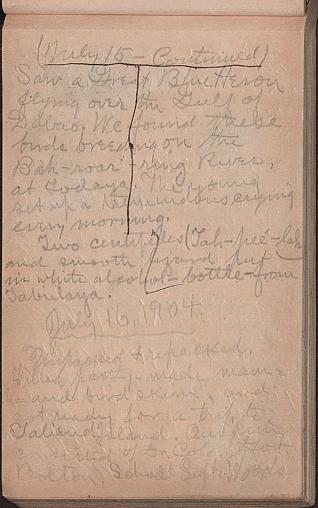 (July 15 - Continued)
Saw a Great Blue Heron
flying over the Gulf of
Davao. We found these
birds breeding on the
Bah-roar'-ring River,
at Todaya. The young
set up a tremendous crying
every morning.
Two centipedes (Tah-peé-lah
and smooth lizard put
in white alcohol-bottle-from
Tabulaya.
July 16, 1904.
Unpacked & repacked.
Filled party, made mam=
= and bird skins, and
got ready for a trip to
Talicud Island. Our
consisted of Dr. Cole,
Bolton, School Supt. Woods